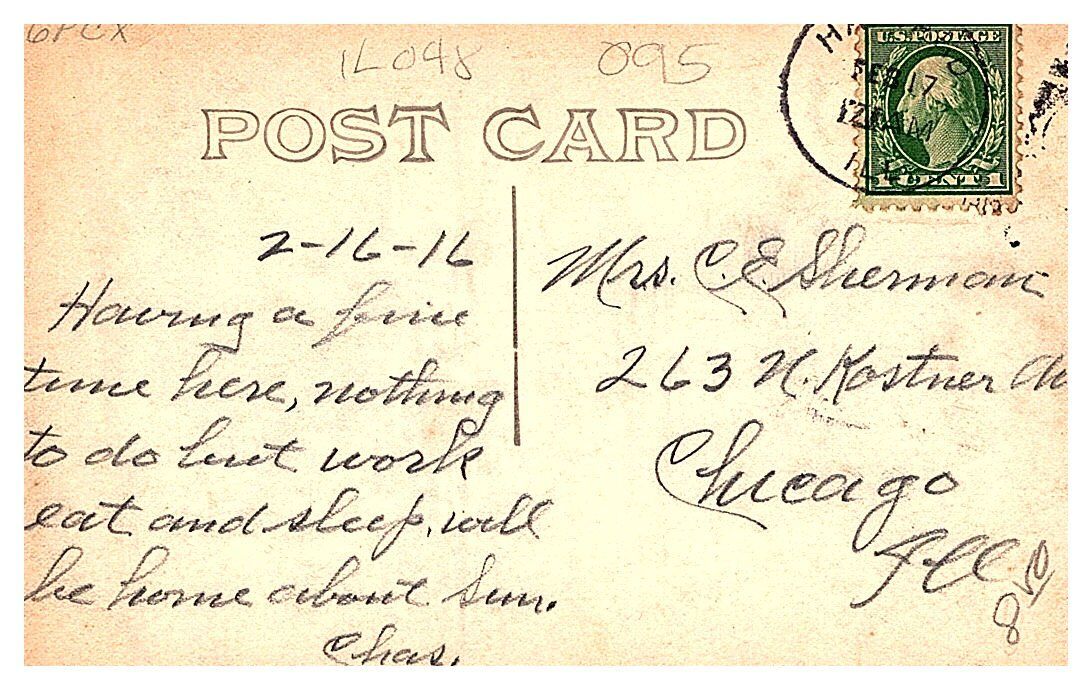 6PCX
1L048 095
POST CARD
U.S. POSTAGE
FEB 17
12 AM
ILL
1 CENTS 1
2-16-16
Having a fine
time here, nothing
to do but work
eat and sleep, will
be home about Sun.
Chas.
Mrs. C. E. Sherman
263 N. Kostner
Chicago
Ill.